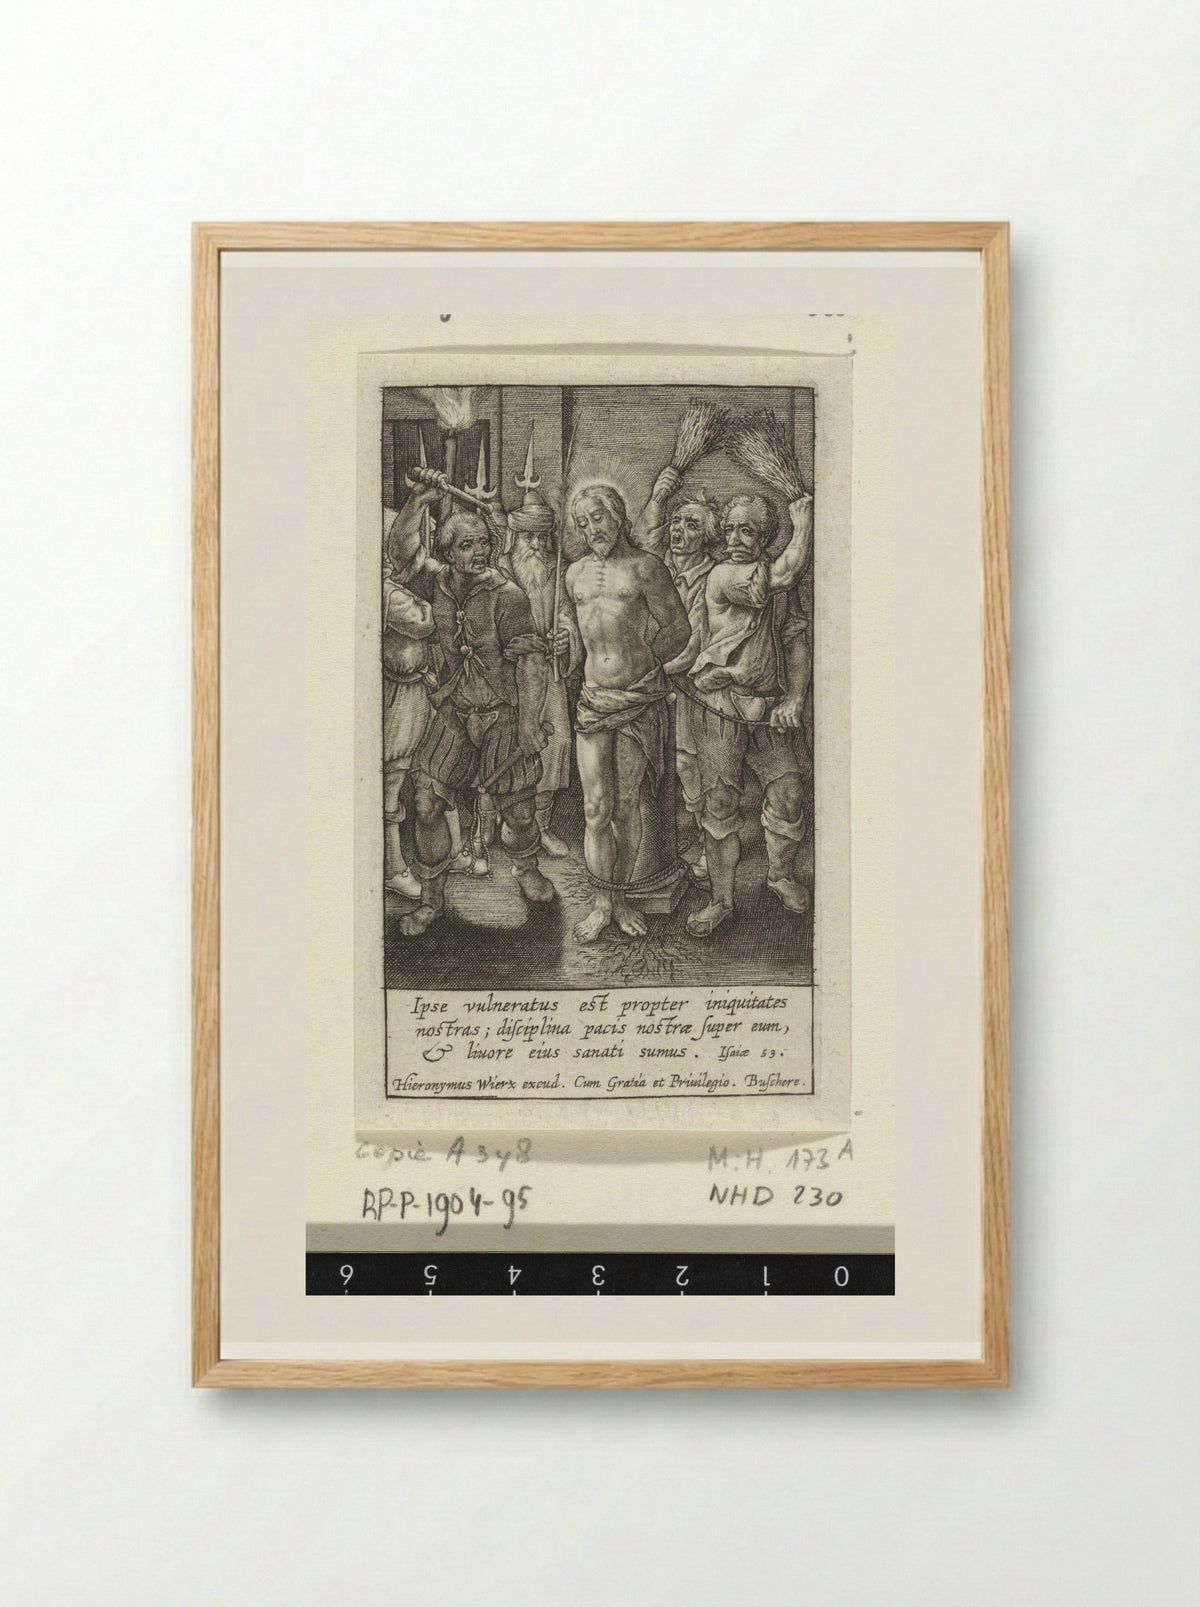 Ipse vulneratus est propter iniquitates
nostras; disciplina pacis nostræ super eum,
& liuore eius sanati sumus. Isaiæ 53.
Hieronymus Wierx excud. Cum Gratia et Priuilegio. Buschere.
copie A 348 M.H. 173 A
RP-P-1904-95 NHD 230
6 5 4 3 2 1 0